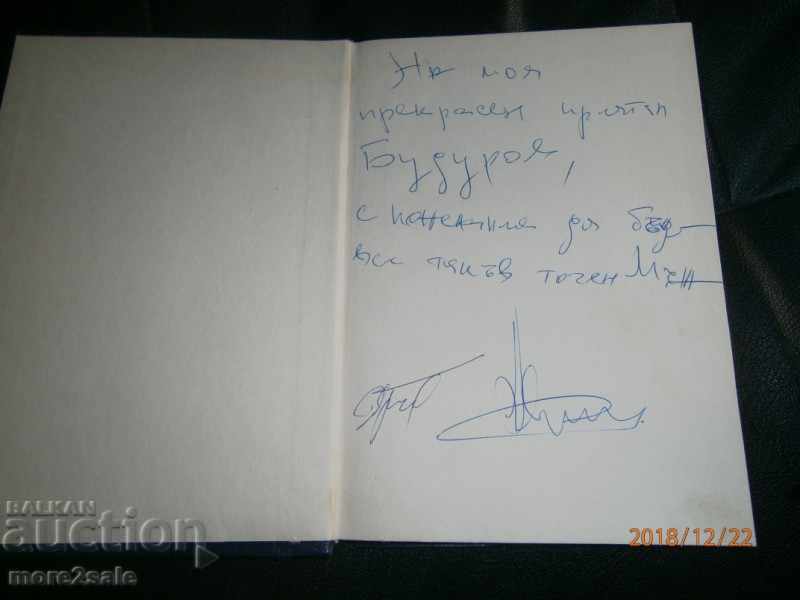 На моя
прекрасен приятел
Будуров,
с пожелния да бъде
все такъв точен Мъж
2018/12/22
BALKAN
auction
more2sale